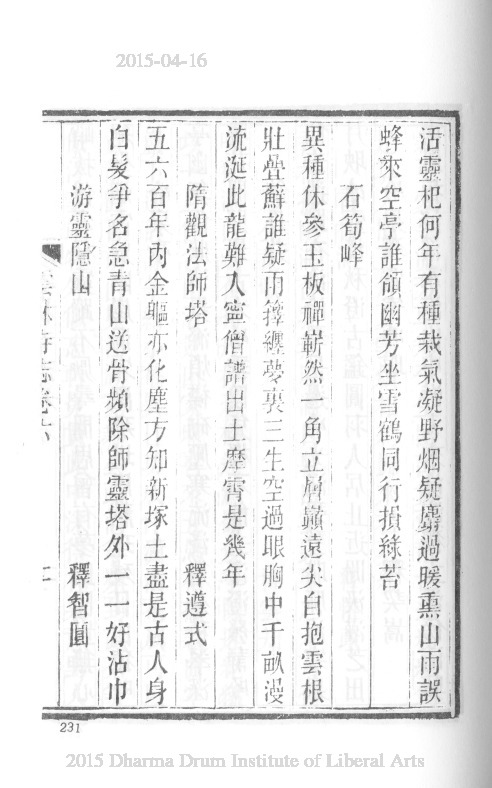 2015-04-16
活靈杞何年有種栽氣凝野烟疑麝過暖熏山雨誤
蜂來空亭誰領幽芳坐雪鶴同行損綠苔
石筍峰
異種休參玉板禪嶄然一角立層巔遠尖自抱雲根
壯疊蘚誰疑雨籜纏夢裏三生空過眼胸中千畝漫
流涎此龍難入寧僧譜出土摩霄是幾年
隋觀法師塔 釋遵式
五六百年內金軀亦化塵方知新塚土盡是古人身
白髮爭名急青山送骨頻除師靈塔外一一好沾巾
游靈隱山 釋智圓
雲林寺志卷六
231
2015 Dharma Drum Institute of Liberal Arts